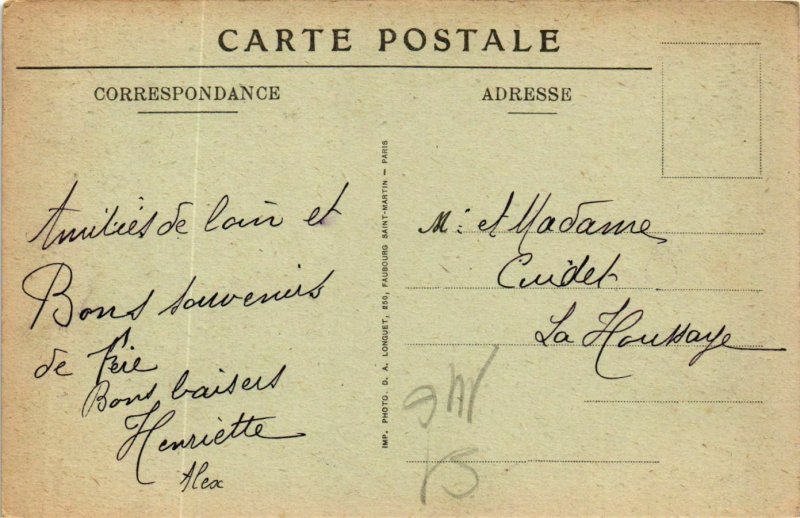 CARTE POSTALE
CORRESPONDANCE
Amitiés de loin et
Bons souvenirs
de Fère
Bons baisers
Henriette
Alex
IMP. PHOTO. D. A. LONGUET, 250, FAUBOURG SAINT-MARTIN — PARIS
ADRESSE
M. et Madame
Cuidet
La Houssaye